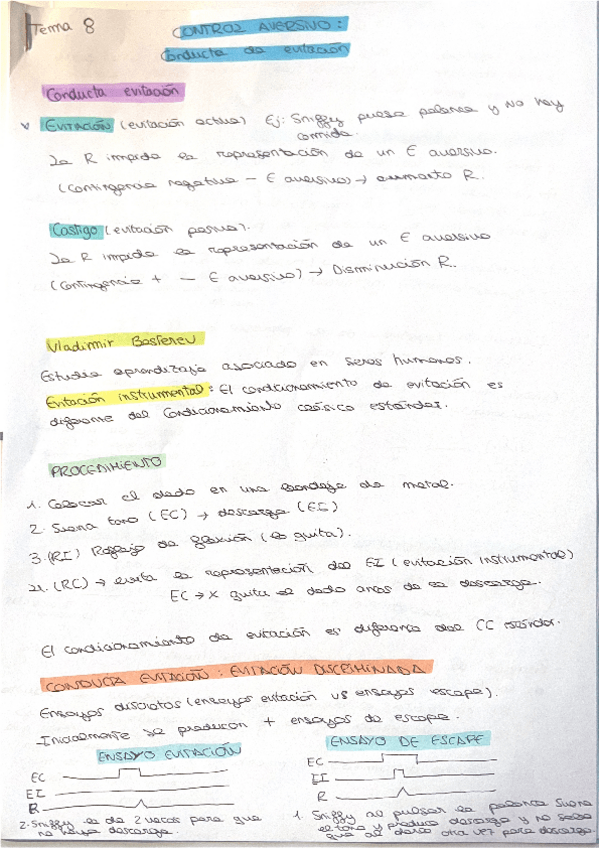 Tema 8
CONTROL AVERSIVO:
Conducta de evitación
Conducta evitación
EVITACIÓN (evitación activa) Ej: Sniffy pulsa palanca y no hay
comida.
La R impide la representación de un E aversivo.
(contingencia negativa - E aversivo) → aumento R.
Castigo (evitación pasiva).
La R impide la representación de un E aversivo
(contingencia + - E aversivo) → Disminución R.
Vladimir Besferev
Estudia aprendizaje asociado en seres humanos.
Evitación instrumental: El condicionamiento de evitación es
diferente del Condicionamiento clásico estándar.
PROCEDIMIENTO
1. Colocar el dedo en una bandeja de metal.
2. Suena tono (EC) → descarga (EI)
3. (RI) Reflejo de flexión (lo quita).
4. (RC) → evita la representación del EI (evitación instrumental)
EC → X quita el dedo antes de la descarga.
El condicionamiento de evitación es diferente del CC estándar.
CONDUCTA EVITACIÓN: EVITACIÓN DISCRIMINADA
Ensayos discretos (ensayos evitación vs ensayos escape).
-Inicialmente se producen + ensayos de escape.
ENSAYO EVITACIÓN
EC
EI
R
2. Sniffy le da 2 veces para que
no haya descarga.
ENSAYO DE ESCAPE
EC
EI
R
1. Sniffy al pulsar la palanca suena
el tono y produce descarga y no sabe
que al darle otra vez para descarga.